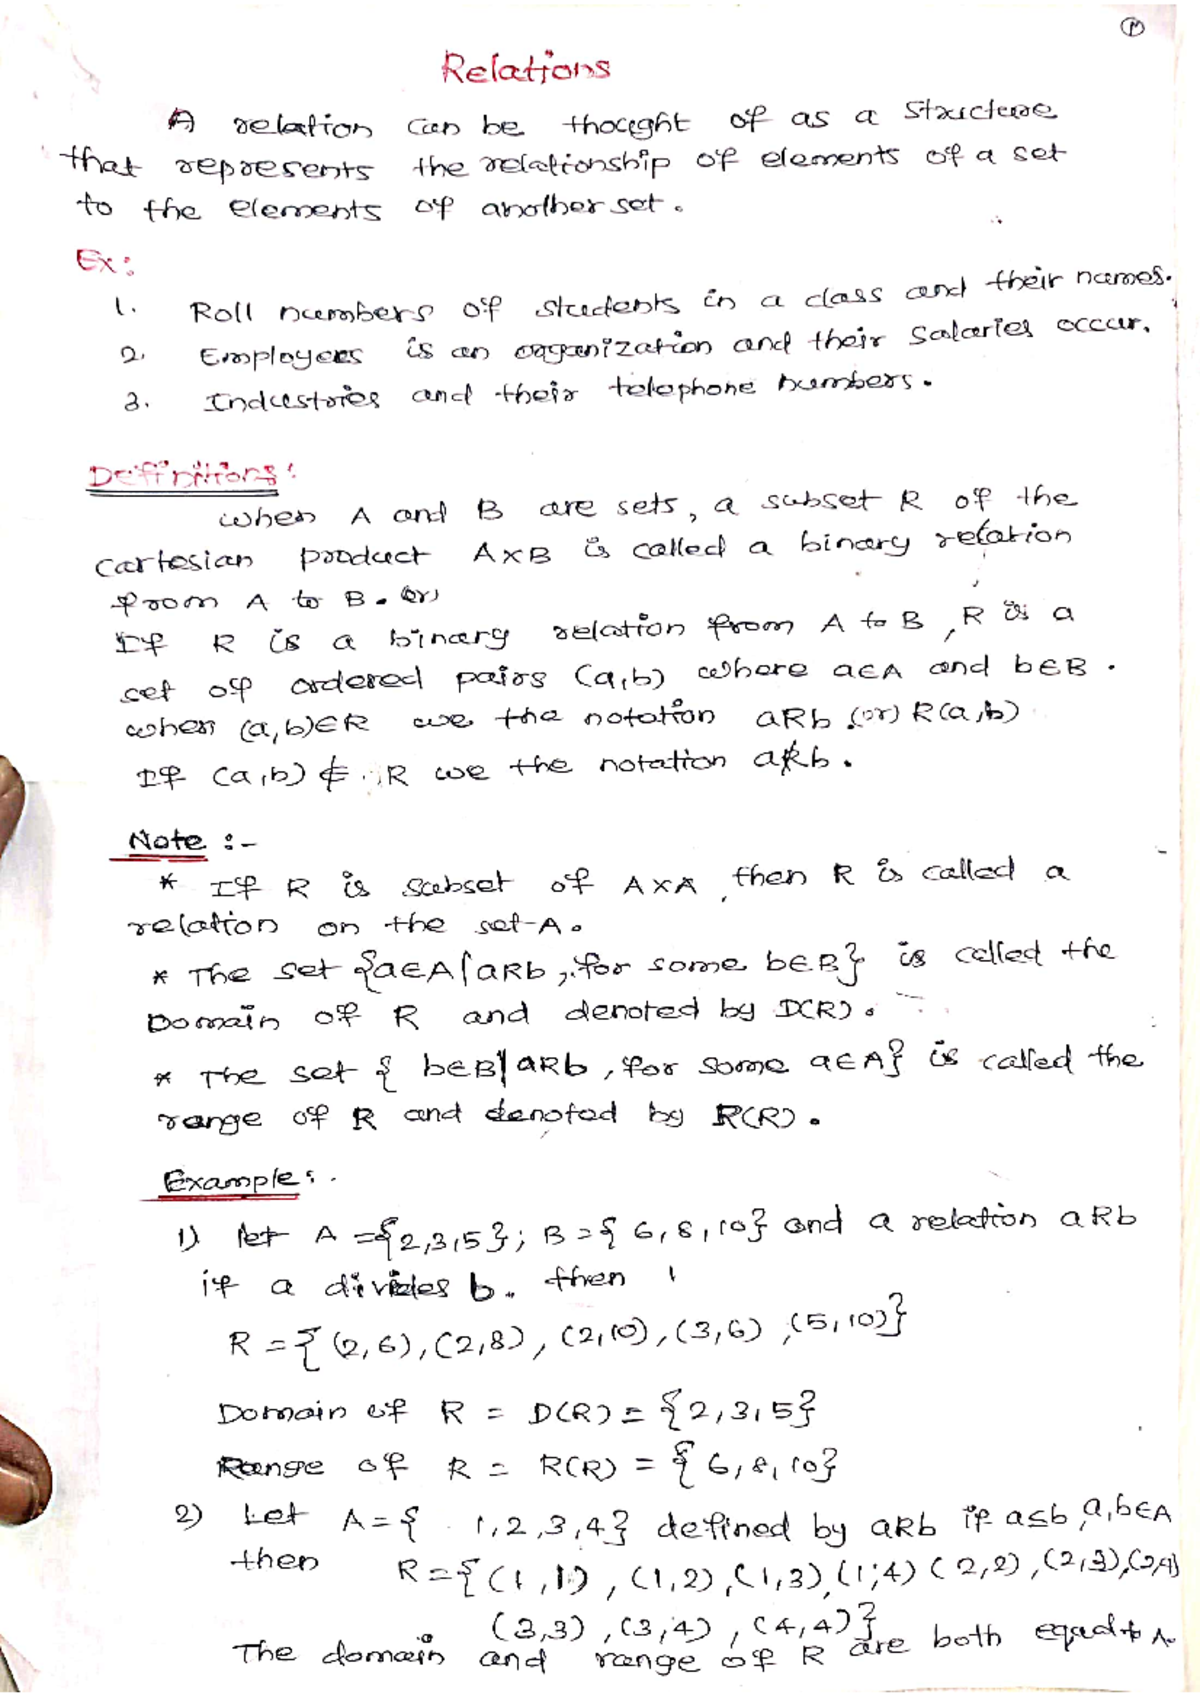 Relations
A relation can be thought of as a structure
that represents the relationship of elements of a set
to the elements of another set.
Ex:
1. Roll numbers of students in a class and their names.
2. Employees is an organization and their salaries occur.
3. Industries and their telephone numbers.
Definitions:
when A and B are sets, a subset R of the
cartesian product A×B is called a binary relation
from A to B. (or)
If R is a binary relation from A to B, R is a
set of ordered pairs (a,b) where a∈A and b∈B.
when (a,b)∈R we the notation aRb (or) R(a,b)
If (a,b) ∉ R we the notation aR̸b.
Note :-
* If R is subset of A×A, then R is called a
relation on the set-A.
* The set {a∈A/aRb, for some b∈B} is called the
Domain of R and denoted by D(R).
* The set { b∈B|aRb, for some a∈A} is called the
range of R and denoted by R(R).
Example:
1) let A={2,3,5}; B={6,8,10} and a relation aRb
if a divides b. then
R={(2,6),(2,8),(2,10),(3,6),(5,10)}
Domain of R = D(R) = {2,3,5}
Range of R = R(R) = {6,8,10}
2) Let A={1,2,3,4} defined by aRb if a≤b, a,b∈A
then R={(1,1),(1,2),(1,3),(1,4)(2,2),(2,3),(2,4)
(3,3),(3,4),(4,4)}
The domain and range of R are both equal to A.